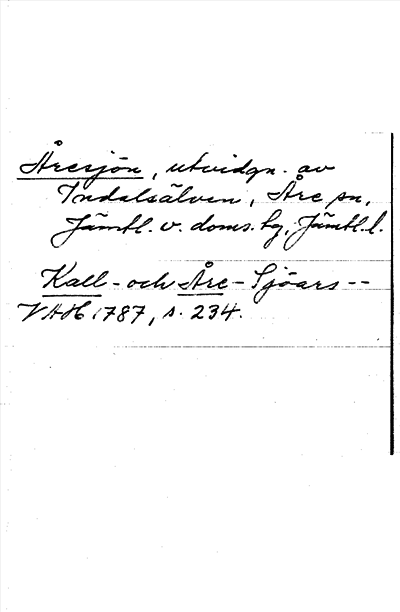 Åresjön, utvidgn. av
Indalsälven, Åre sn,
Jämtl. v. doms. hg, Jämtl. l.
Kall- och Åre-Sjöars --
VAH 1787, s. 234.